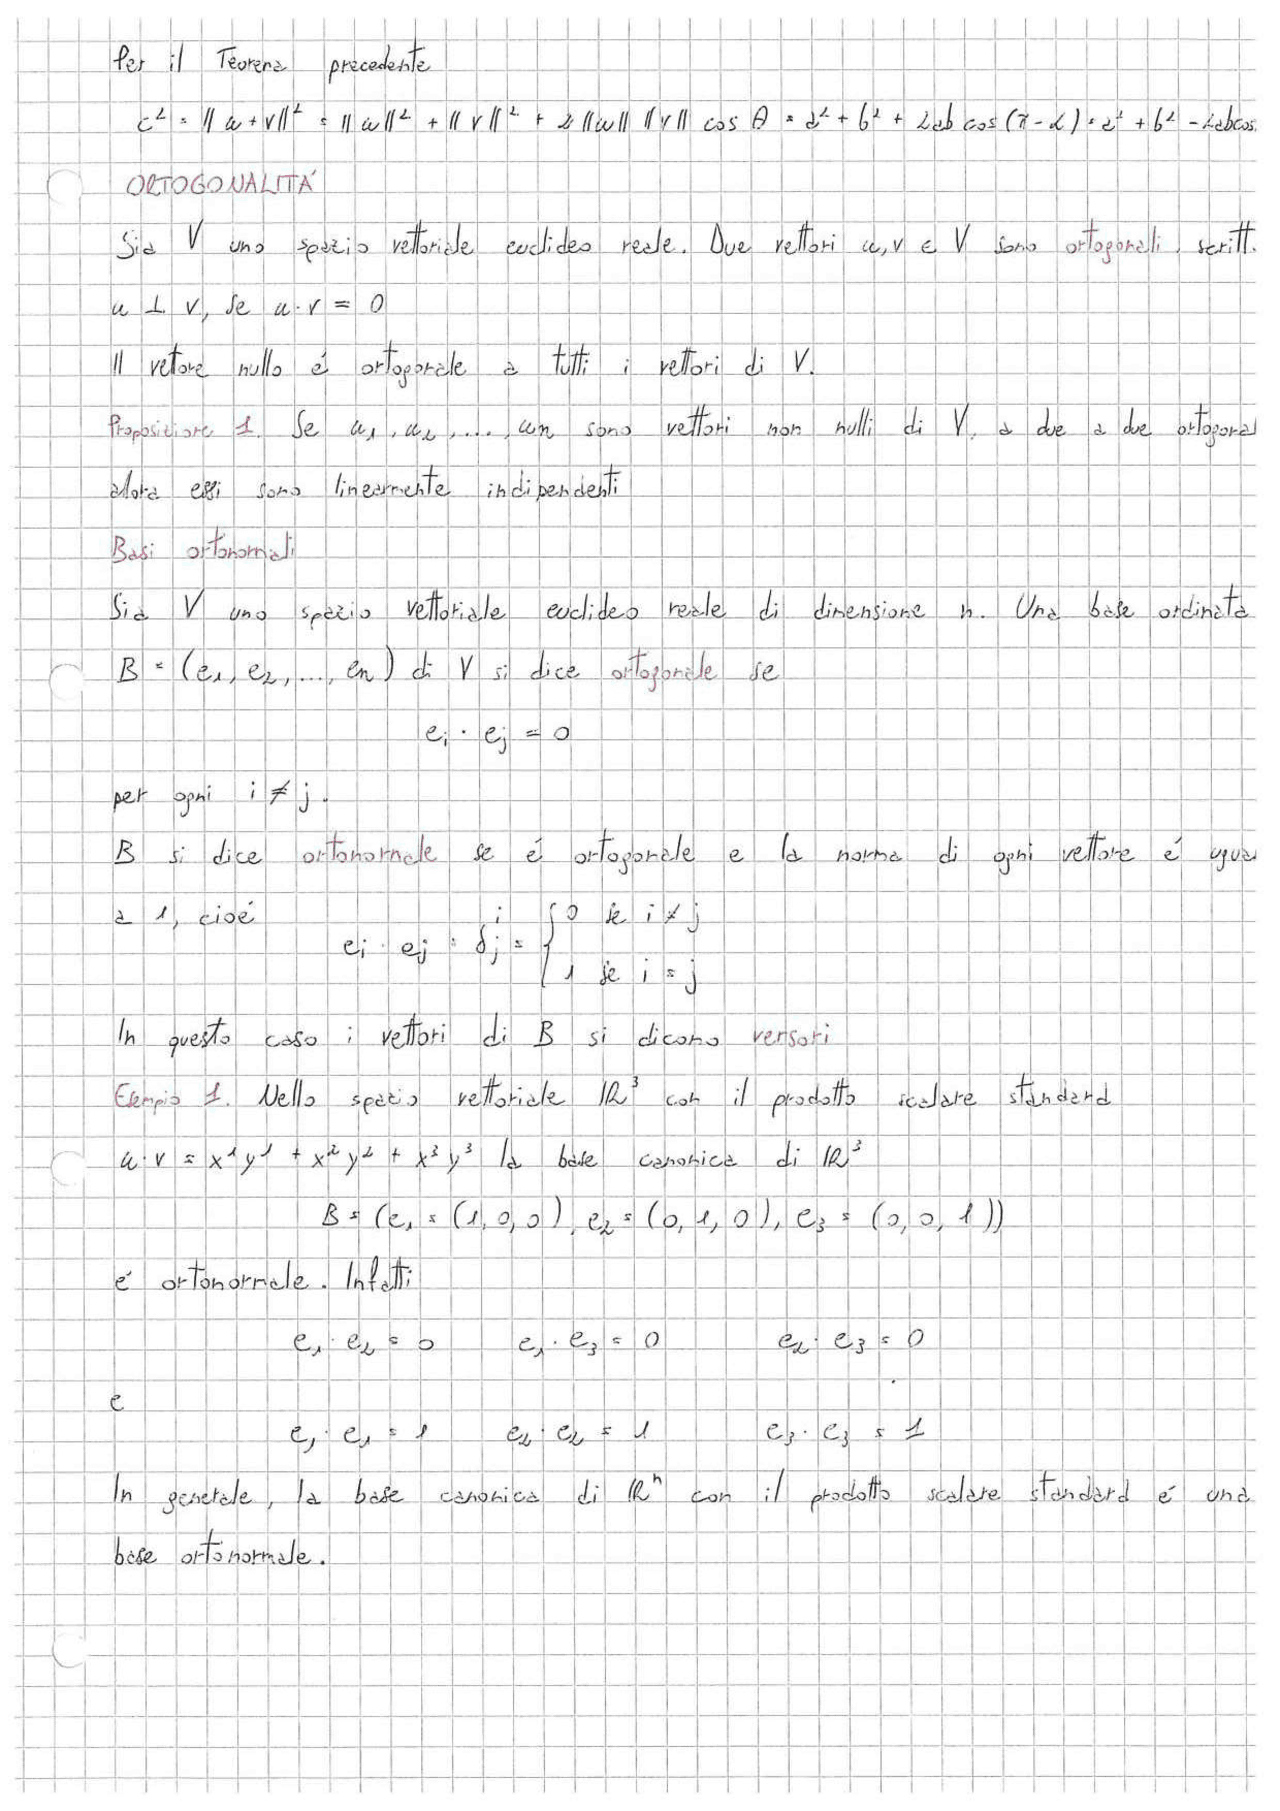 Per il Teorema precedente
c² = ||u+v||² = ||u||² + ||v||² + 2||u|| ||v|| cos θ = a² + b² + 2ab cos(π-α) = a² + b² - 2abcos
ORTOGONALITÁ
Sia V uno spazio vettoriale euclideo reale. Due vettori u,v ∈ V sono ortogonali, scritt.
u ⊥ v, se u·v = 0
Il vettore nullo é ortogonale a tutti i vettori di V.
Proposizione 1. Se u₁, u₂, ..., um sono vettori non nulli di V, a due a due ortogonal
allora essi sono linearmente indipendenti
Basi ortonormali
Sia V uno spazio vettoriale euclideo reale di dimensione n. Una base ordinata
B = (e₁, e₂, ..., en) di V si dice ortogonale se
ei · ej = 0
per ogni i ≠ j.
B si dice ortonormale se é ortogonale e la norma di ogni vettore é ugua
a 1, cioé
ei · ej = δⁱj = { 0 se i ≠ j
1 se i = j
In questo caso i vettori di B si dicono versori
Esempio 1. Nello spazio vettoriale ℝ³ con il prodotto scalare standard
u·v = x¹y¹ + x²y² + x³y³ la base canonica di ℝ³
B = (e₁ = (1,0,0), e₂ = (0,1,0), e₃ = (0,0,1))
é ortonormale. Infatti
e₁·e₂ = 0 e₁·e₃ = 0 e₂·e₃ = 0
e
e₁·e₁ = 1 e₂·e₂ = 1 e₃·e₃ = 1
In generale, la base canonica di ℝⁿ con il prodotto scalare standard é una
base ortonormale.